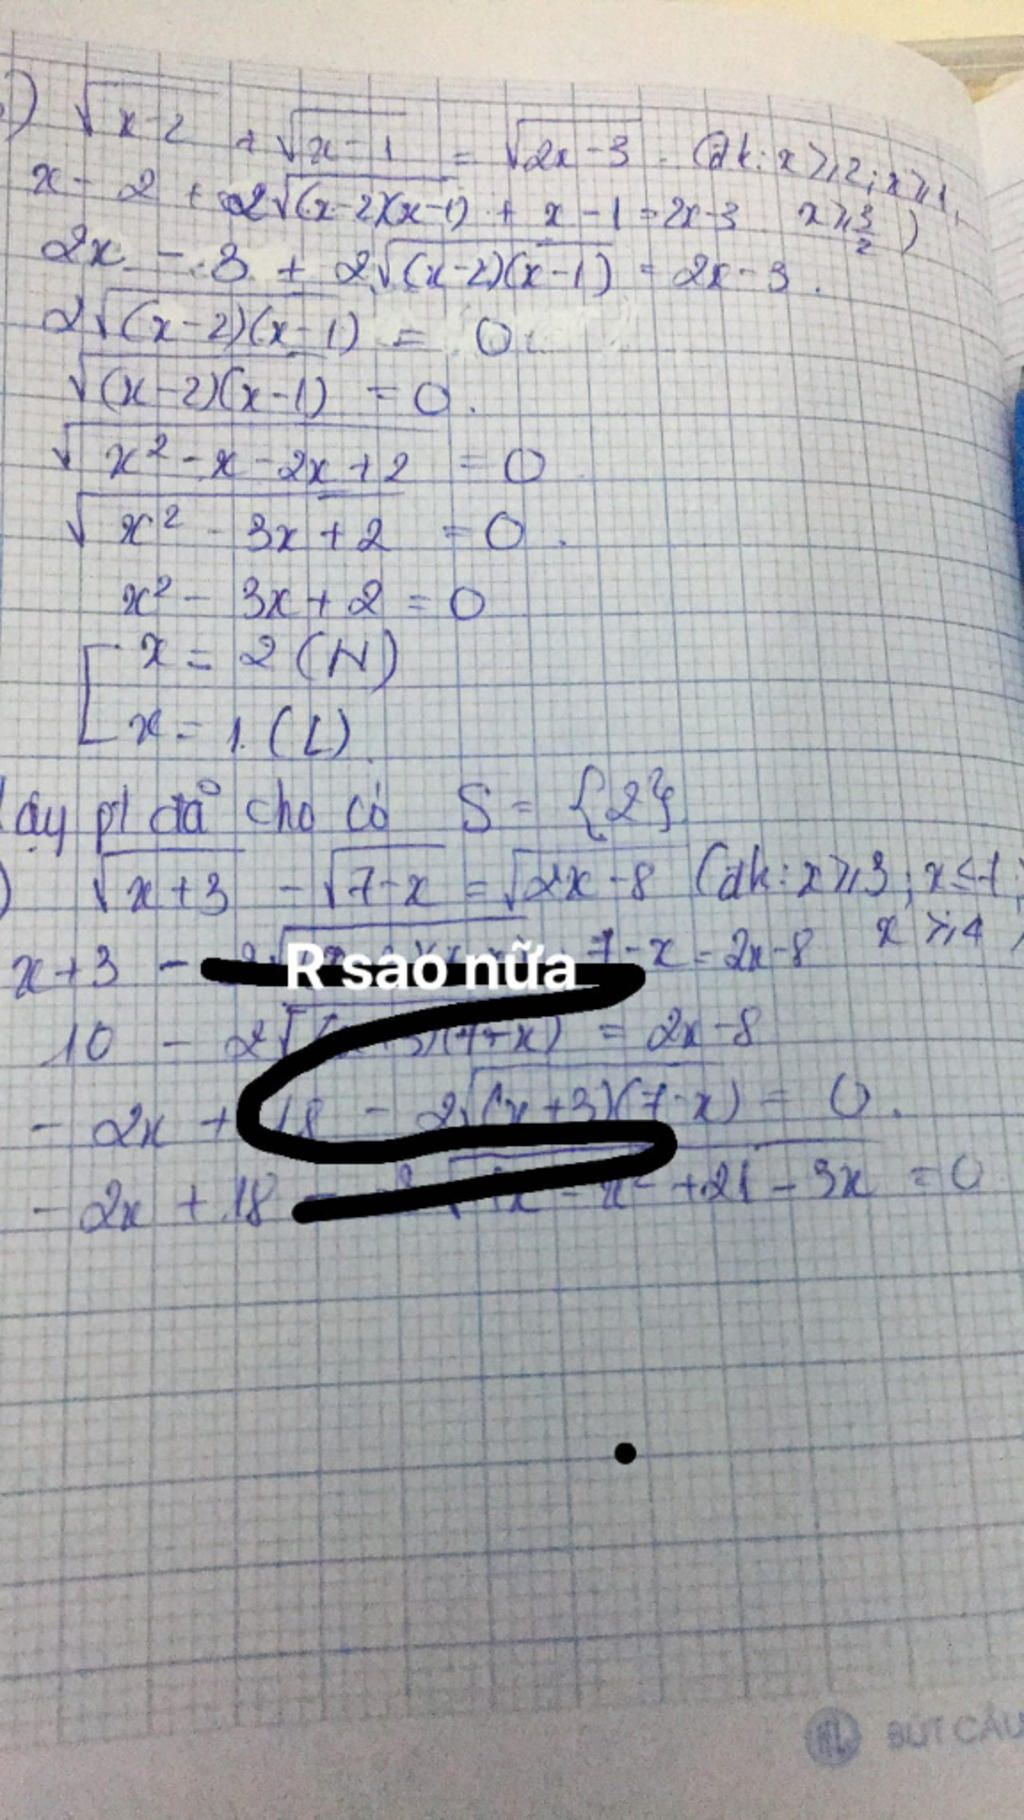 √x-2 + √x-1 = √2x-3. (đk: x ≥ 2; x ≥ 1,
x - 2 + 2√(x-2)(x-1) + x - 1 = 2x-3 x ≥ 3/2 )
2x - 3 + 2√(x-2)(x-1) = 2x-3.
2√(x-2)(x-1) = 0.
√(x-2)(x-1) = 0.
√x² - x - 2x + 2 = 0
√x² - 3x + 2 = 0.
x² - 3x + 2 = 0
[ x = 2 (N)
x = 1. (L)
ậy pt đã cho có S = {2}
) √x+3 - √7-x = √2x-8 (đk: x ≥ 3; x ≤
x+3 - 7-x = 2x-8 x ≥ 4 )
R sao nữa
10 - 2√ = 2x-8
- 2x + 18 - 2√(x+3)(7-x) = 0.
- 2x + 18 - x² + 21 - 3x = 0
BÚT CÂU